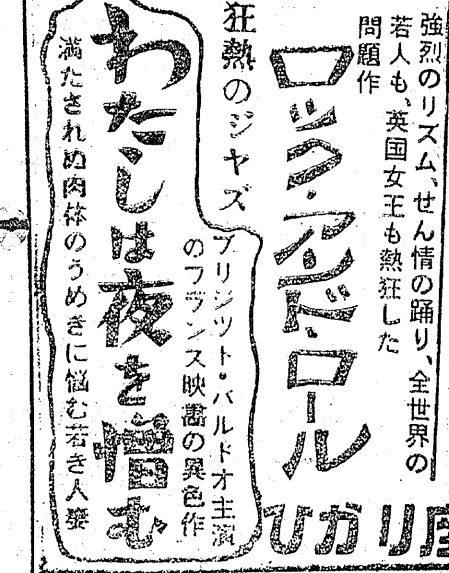 強烈のリズム、せん情の踊り、全世界の
若人も、英国女王も熱狂した
問題作
ロック・アンド・ロール
狂熱のジヤズ
ブリジツト・バルドオ主演
のフランス映畵の異色作
わたしは夜を憎む
満たされぬ肉体のうめきに悩む若き人妻
ひかり座